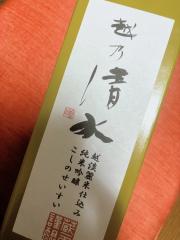 越乃清水
越淡麗米仕込み
純米吟醸
こしのせいすい